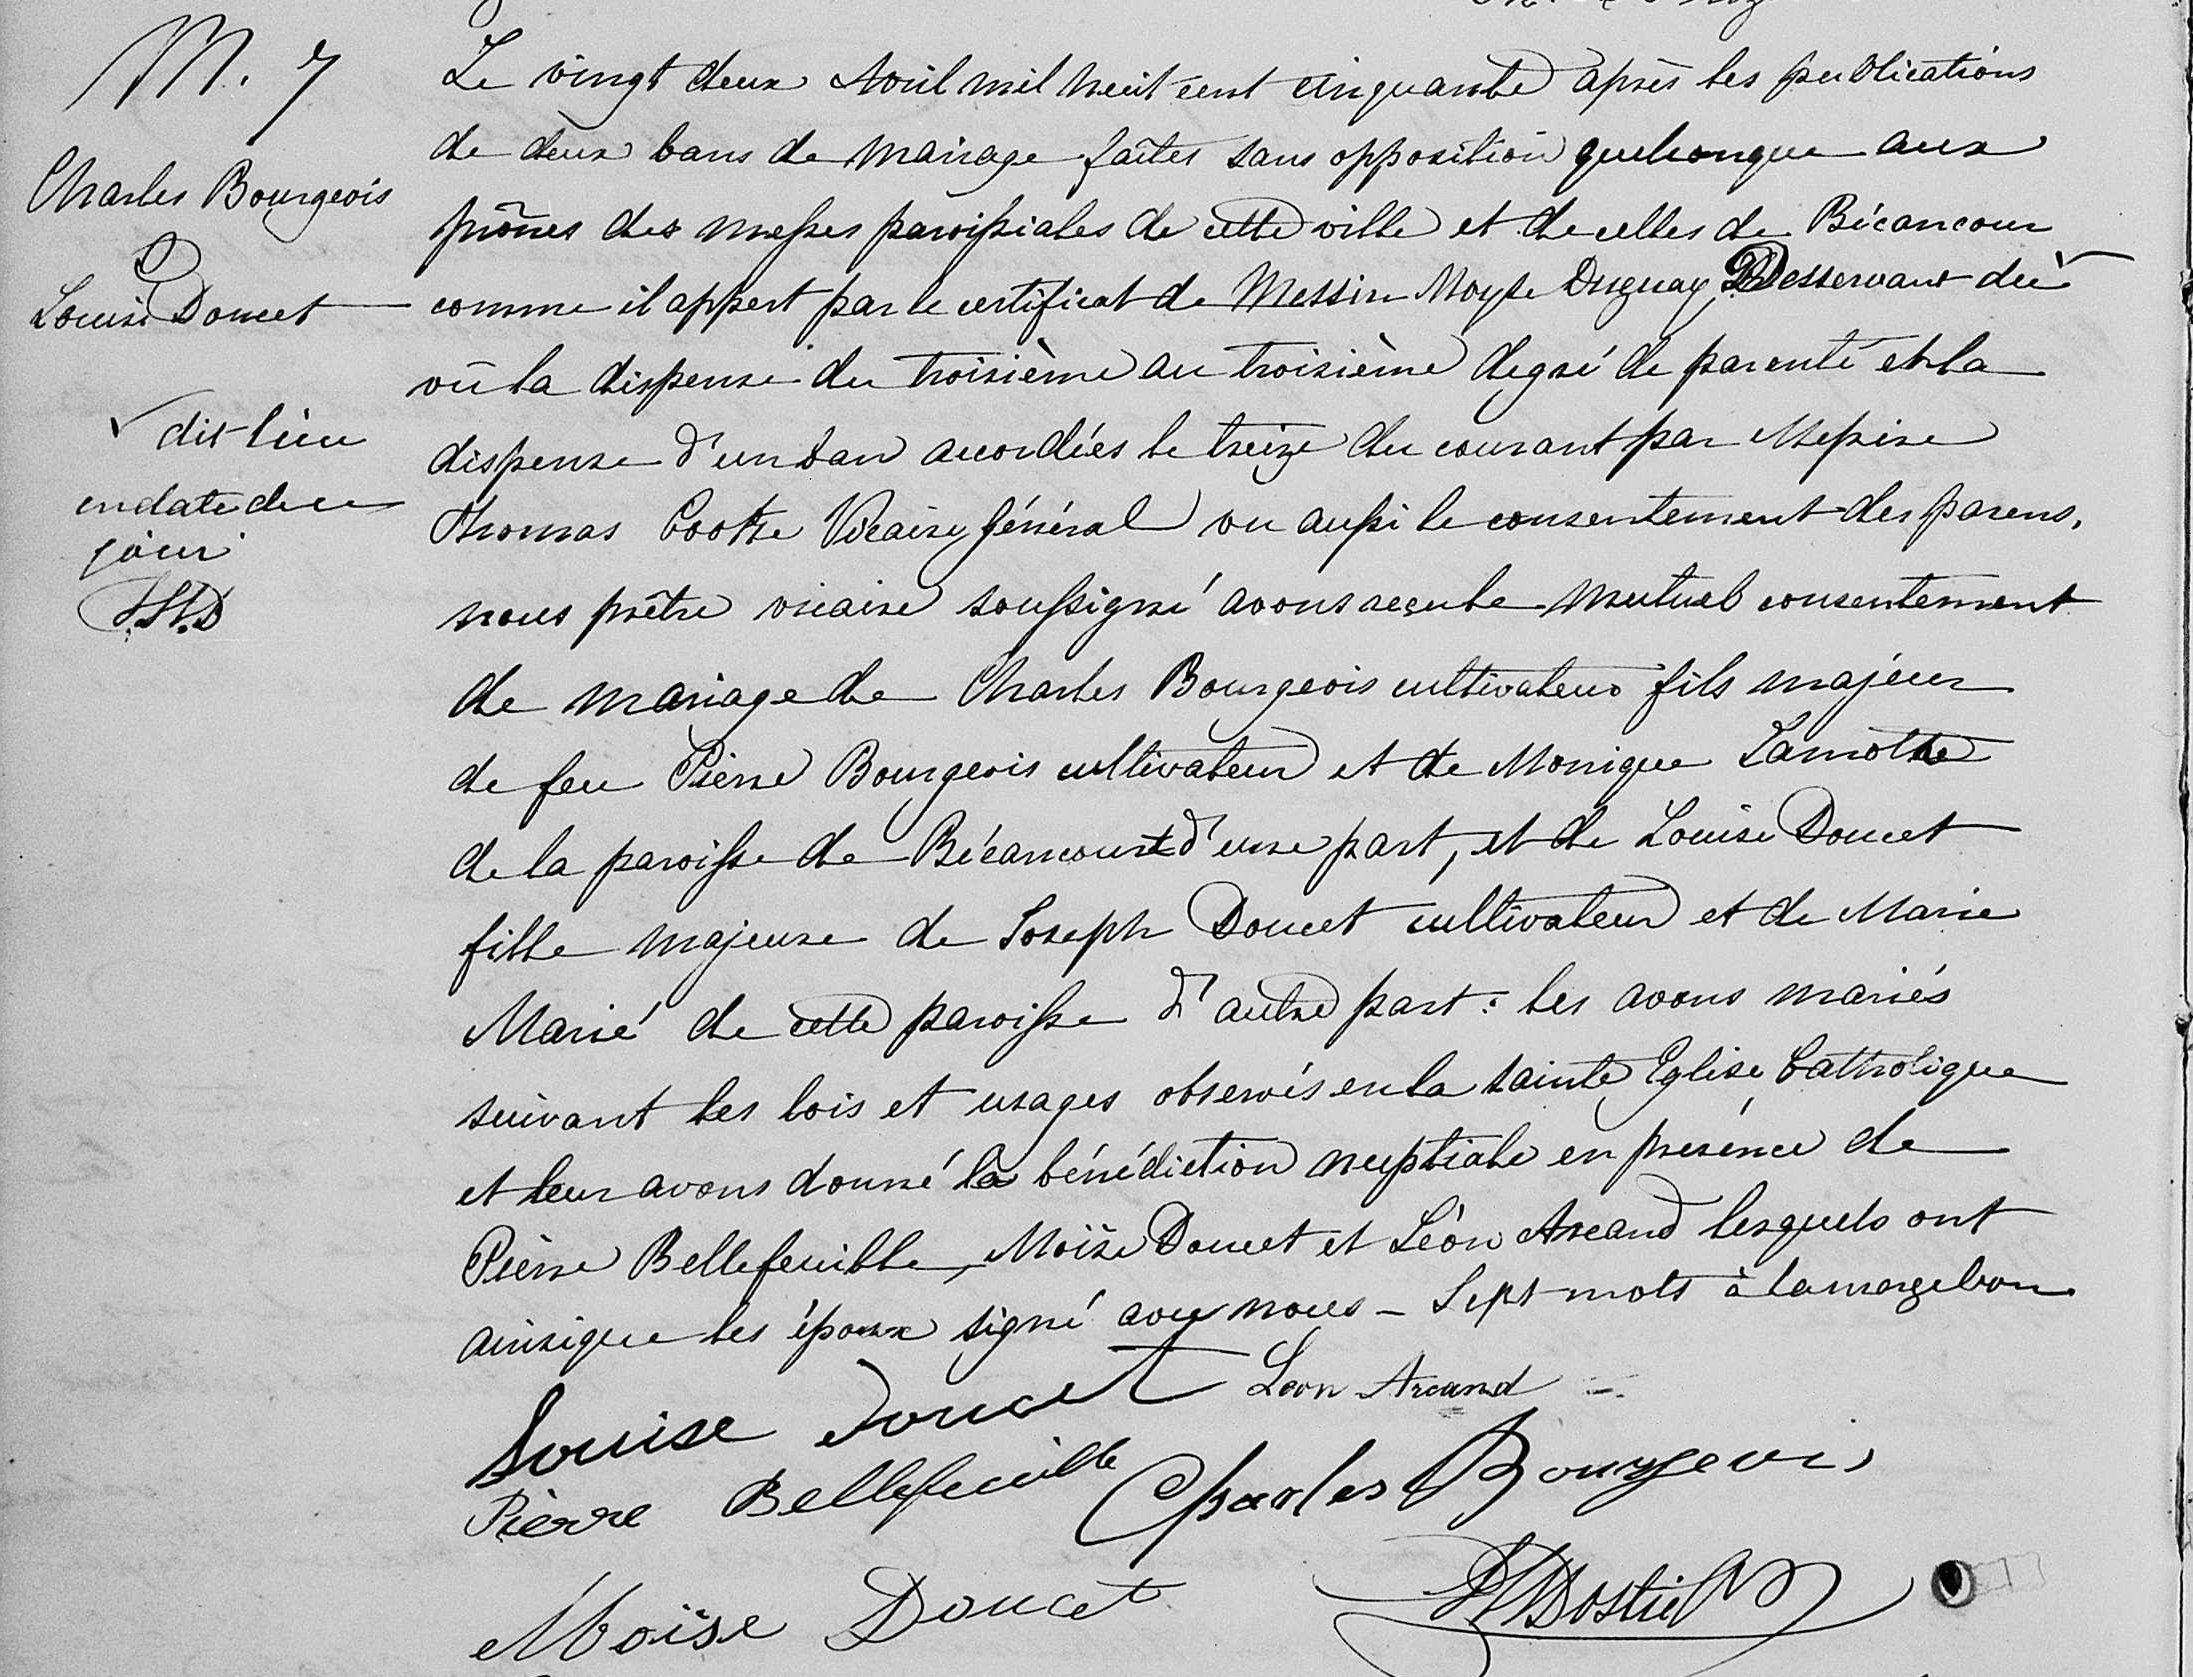 M. 7
Charles Bourgeois
&
Louise Doucet
dit lieu
en date de ce
jour
Le vingt deux Avril mil huit cent cinquante après les publications
de deux bans de mariage faites sans opposition quelconque aux
prônes des messes paroissiales de cette ville et de celles de Bécancour
comme il appert par le certificat de Messire Moyse Duguay Desservant du
vû la dispense du troisième au troisième degré de parenté et la
dispense d'un ban accordées le treize du courant par Messire
Thomas Cooke Vicaire Général vu aussi le consentement des parens,
nous prêtre vicaire soussigné avons reçu le mutuel consentement
de mariage de Charles Bourgeois cultivateur fils majeur
de feu Pierre Bourgeois cultivateur et de Monique Lamothe
de la paroisse de Bécancourt d'une part, et de Louise Doucet
fille majeure de Joseph Doucet cultivateur et de Marie
Marié de cette paroisse d'autre part: les avons mariés
suivant les lois et usages observés en la sainte Eglise Catholique
et leur avons donné la bénédiction nuptiale en présence de
Pierre Bellefeuille, Moïse Doucet et Léon Arcand lesquels ont
ainsi que les époux signé avec nous - Sept mots à la marge bon
Louise Doucet Leon Arcand
Pierre Bellefeuille Charles Bourgeois
Moïse Doucet Dostie